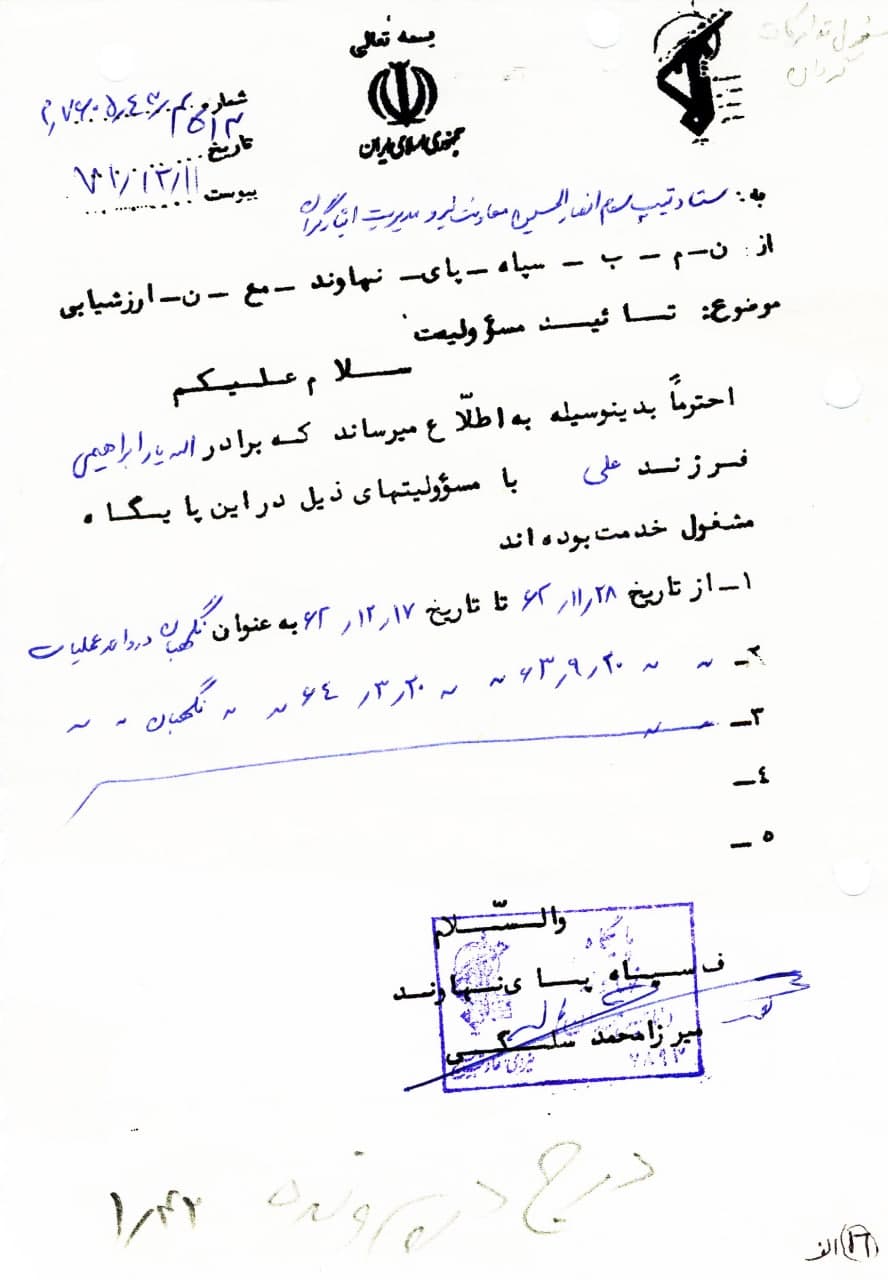 بسمه تعالی
جمهوری اسلامی ایران
شماره
تاریخ ۷۱/۱۲/۱۱
پیوست
به: ستاد تیپ سوم انصارالحسین معاونت نیرو مدیریت ایثارگران
از: ن-م-ب-سپاه-پای-نهاوند-مع-ن-ارزشیابی
موضوع: تائید مسؤولیت
سلام علیکم
احتراماً بدینوسیله به اطلّاع میرساند که برادر اله یار ابراهیمی
فرزند علی با مسؤولیتهای ذیل در این پایگاه
مشغول خدمت بوده اند
۱- از تاریخ ۶۲/۱۱/۲۸ تا تاریخ ۶۲/۱۲/۱۷ به عنوان نگهبان عملیات
۲- ~ ~ ۶۳/۹/۲۰ ~ ~ ۶۴/۳/۲۰ ~ ~ نگهبان ~ ~
۳-
۴-
۵-
والسّلام
ف سپاه پای نهاوند
میرزامحمد سلگی
درج در پرونده
۱۶ الف